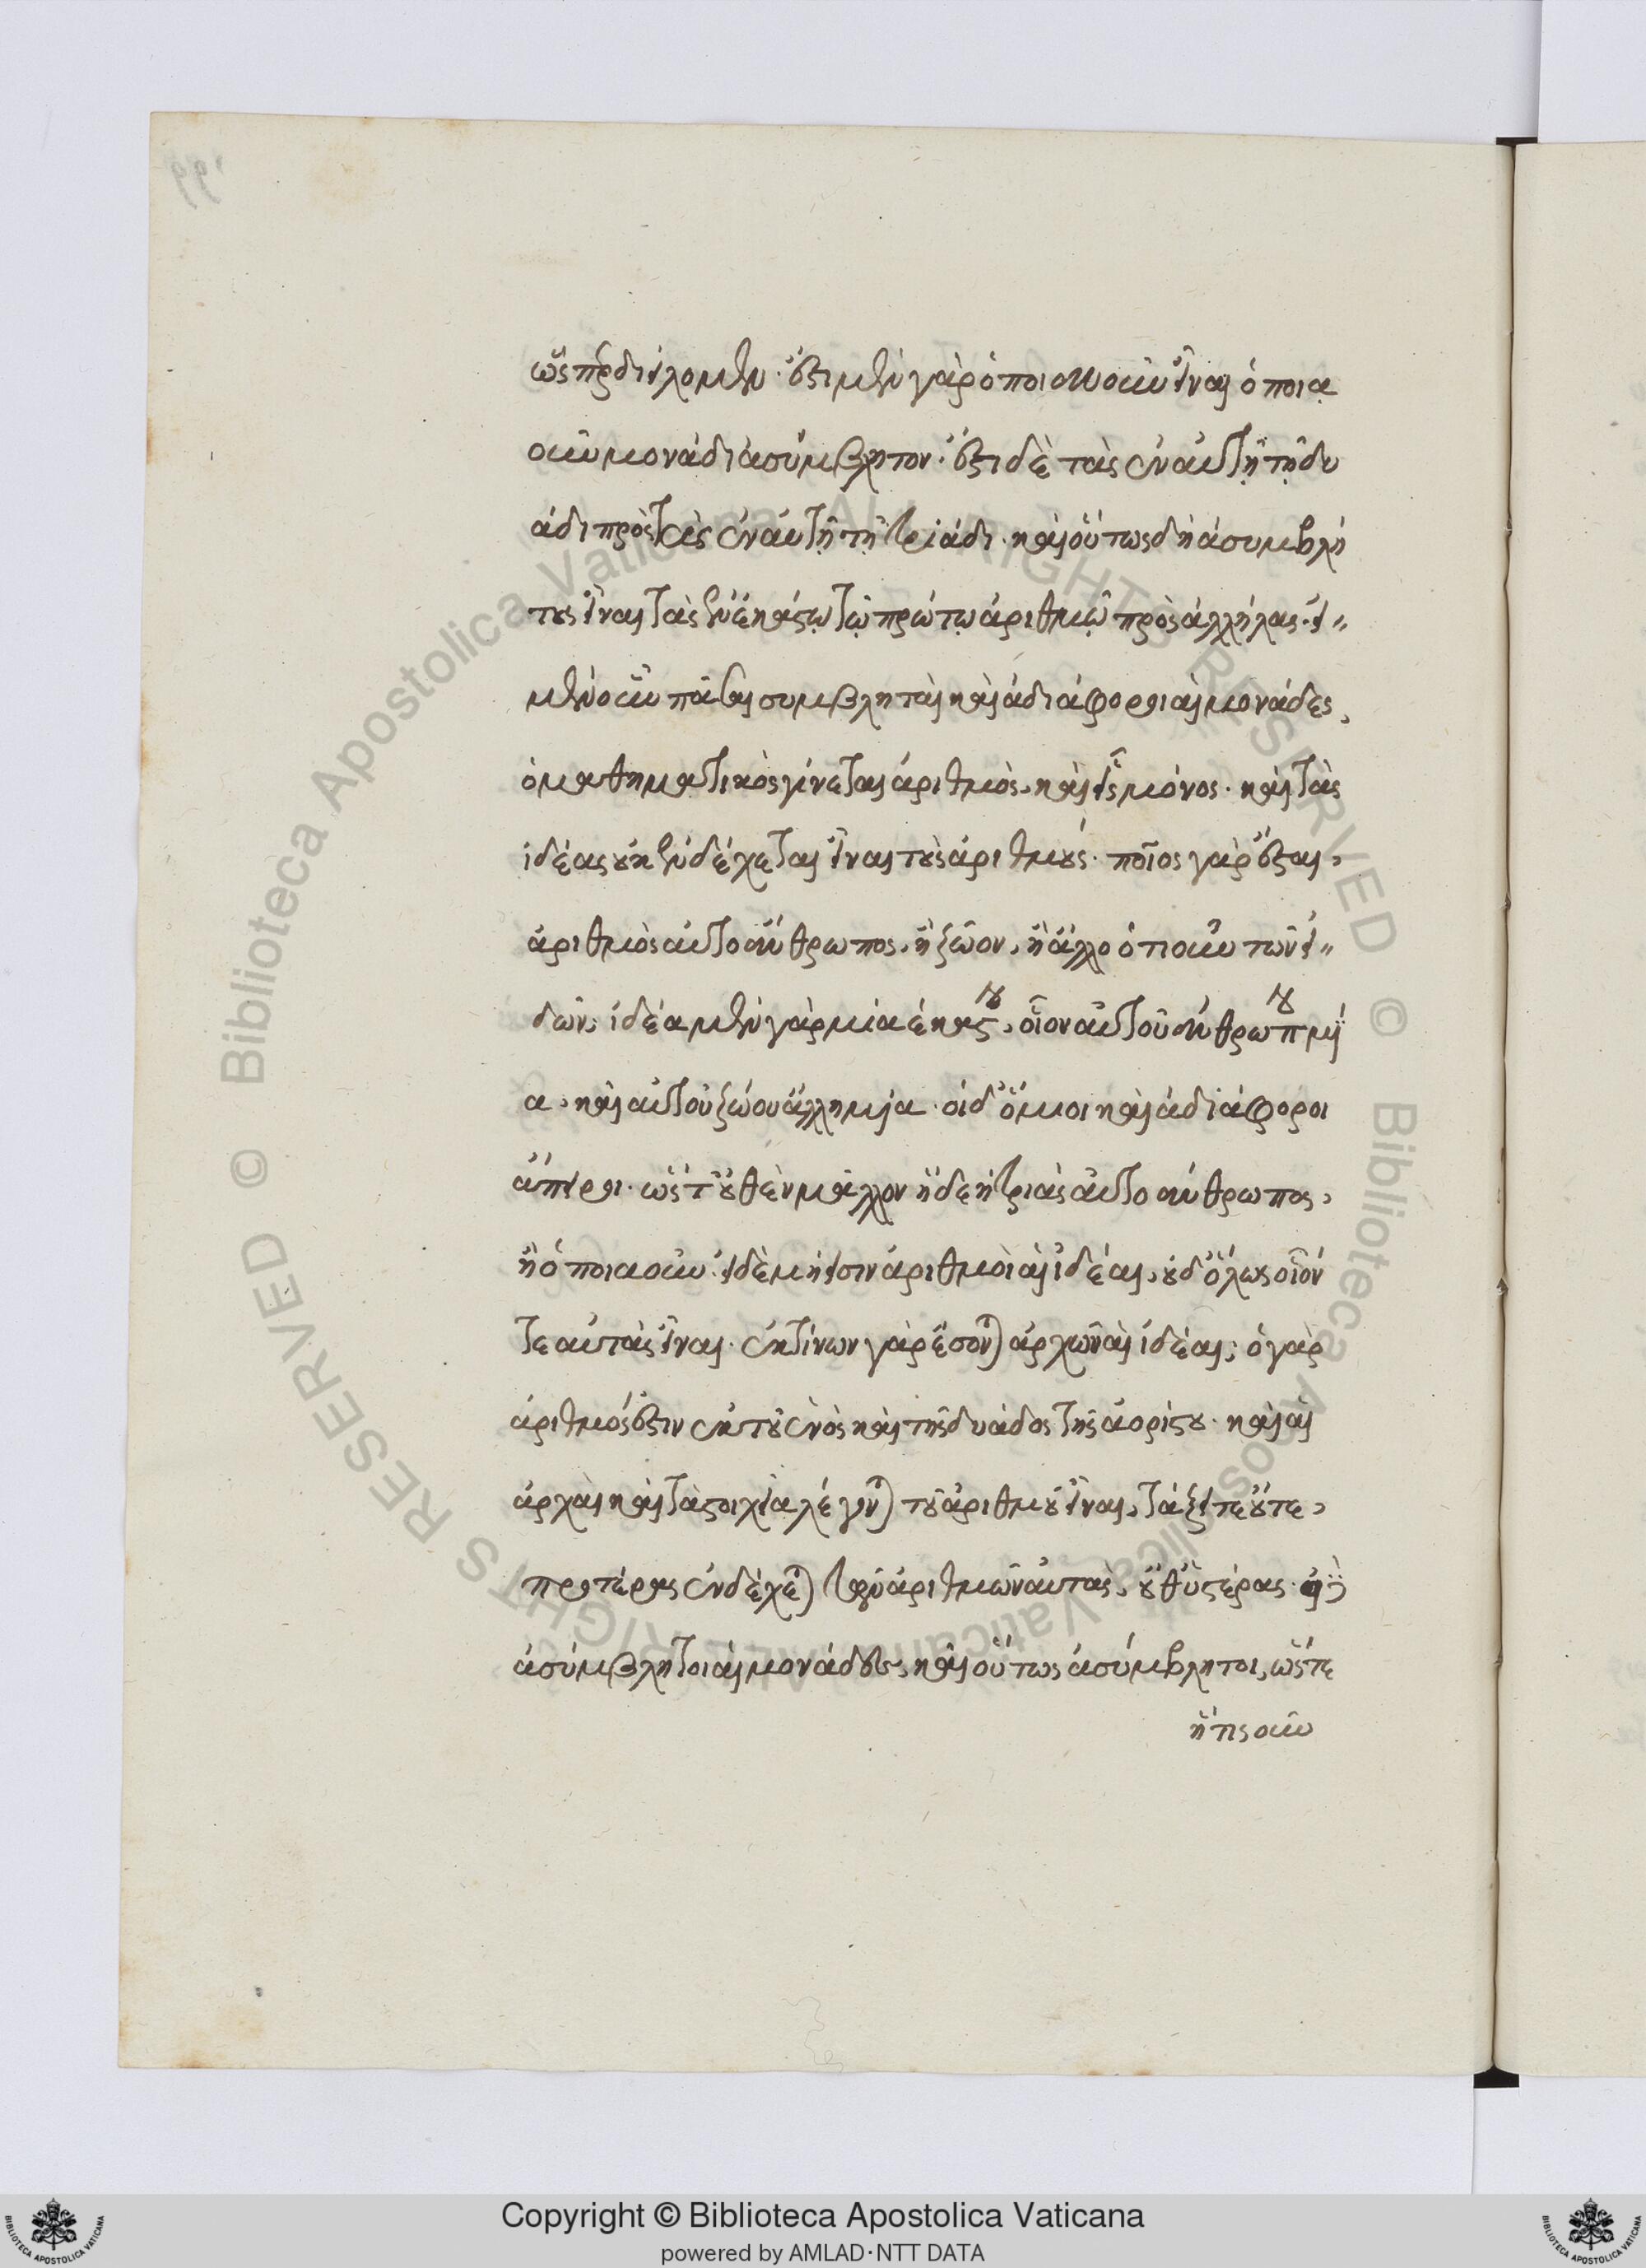 ὥσπερ διείλομεν· ἔστι μὲν γὰρ ὁποιανοῦν εἶναι ὁποιᾳ
οῦν μονάδι ἀσύμβλητον· ἔστι δὲ τὰς ἐν αὐτῇ τῇ δυ
άδι πρὸς τὰς ἐν αὐτῇ τῇ τριάδι· καὶ οὕτως δὴ ἀσυμβλή
τους εἶναι τὰς ἐν ἑκάστῳ τῷ πρώτῳ ἀριθμῷ πρὸς ἀλλήλας· εἰ
μὲν οὖν πᾶσαι συμβληταὶ καὶ ἀδιάφοροι αἱ μονάδες,
ὁ μαθηματικὸς γίνεται ἀριθμὸς, καὶ εἷς μόνος· καὶ τὰς
ἰδέας οὐκ ἐνδέχεται εἶναι τοὺς ἀριθμούς· ποῖος γὰρ ἔσται,
ἀριθμὸς αὐτοάνθρωπος, ἢ ζῶον, ἢ ἄλλο ὁτιοῦν τῶν εἰ
δῶν; ἰδέα μὲν γὰρ μία ἑκάστου, οἷον αὐτοῦ ἀνθρώπου μί
α, καὶ αὐτοῦ ζώου ἄλλη μία· οἱ δ' ὅμοιοι καὶ ἀδιάφοροι
ἄπειροι· ὥστ' οὐθὲν μᾶλλον ἥδε ἡ τριὰς αὐτοάνθρωπος,
ἢ ὁποιαοῦν· εἰ δὲ μή εἰσιν ἀριθμοὶ αἱ ἰδέαι, οὐδ' ὅλως οἷόν
τε αὐτὰς εἶναι· ἐκ τίνων γὰρ ἔσονται ἀρχῶν αἱ ἰδέαι; ὁ γὰρ
ἀριθμός ἐστιν ἐκ τοῦ ἑνὸς καὶ τῆς δυάδος τῆς ἀορίστου· καὶ αἱ
ἀρχαὶ καὶ τὰ στοιχεῖα λέγονται τοῦ ἀριθμοῦ εἶναι, τάξει τε οὔτε,
προτέρας ἐνδέχεται τῶν ἀριθμῶν αὐτὰς, οὔθ' ὑστέρας· εἰ δ'
ἀσύμβλητοι αἱ μονάδες, καὶ οὕτως ἀσύμβλητοι, ὥστε
ἥτις οῦν